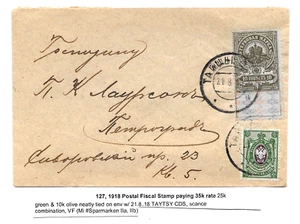 Господину
П. К. Лаурсонъ
Петроградъ
Суворовский 23
Кв. 5.
127, 1918 Postal Fiscal Stamp paying 35k rate 25k
green & 10k olive neatly tied on env w/ 21.8.18 TAYTSY CDS, scarce
combination, VF (Mi #Sparmarken IIa, IIb)